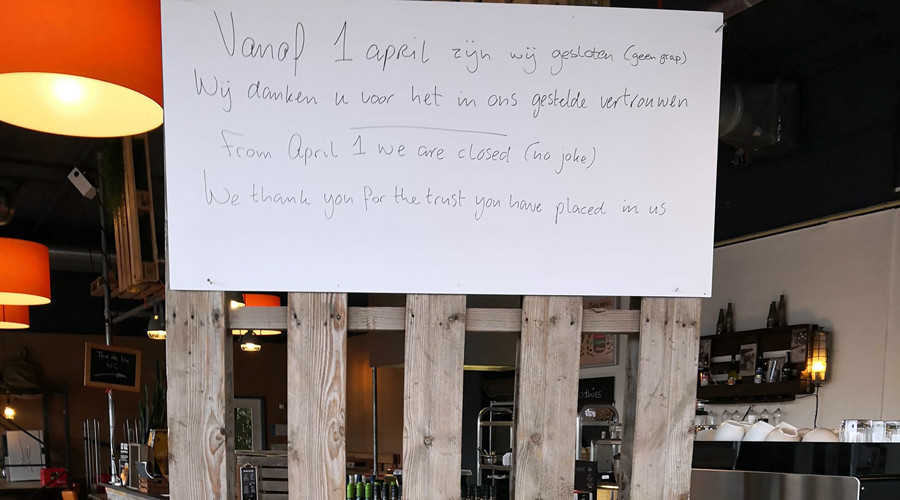 Vanaf 1 april zijn wij gesloten (geen grap)
Wij danken u voor het in ons gestelde vertrouwen
From April 1 we are closed (no joke)
We thank you for the trust you have placed in us